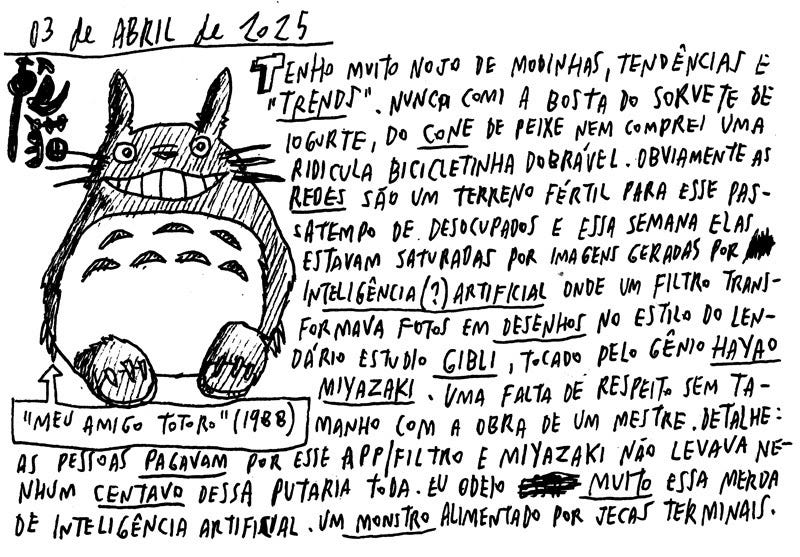 03 de ABRIL de 2025
TENHO MUITO NOJO DE MODINHAS, TENDÊNCIAS E
"TRENDS". NUNCA COMI A BOSTA DO SORVETE DE
IOGURTE, DO CONE DE PEIXE NEM COMPREI UMA
RIDICULA BICICLETINHA DOBRÁVEL. OBVIAMENTE AS
REDES SÃO UM TERRENO FÉRTIL PARA ESSE PAS-
SATEMPO DE DESOCUPADOS E ESSA SEMANA ELAS
ESTAVAM SATURADAS POR IMAGENS GERADAS POR
INTELIGÊNCIA(?) ARTIFICIAL ONDE UM FILTRO TRANS-
FORMAVA FOTOS EM DESENHOS NO ESTILO DO LEN-
DÁRIO ESTUDIO GIBLI, TOCADO PELO GÊNIO HAYAO
MIYAZAKI. UMA FALTA DE RESPEITO SEM TA-
"MEU AMIGO TOTORO" (1988)
MANHO COM A OBRA DE UM MESTRE. DETALHE:
AS PESSOAS PAGAVAM POR ESSE APP/FILTRO E MIYAZAKI NÃO LEVAVA NE-
NHUM CENTAVO DESSA PUTARIA TODA. EU ODEIO MUITO ESSA MERDA
DE INTELIGÊNCIA ARTIFICIAL. UM MONSTRO ALIMENTADO POR JECAS TERMINAIS.